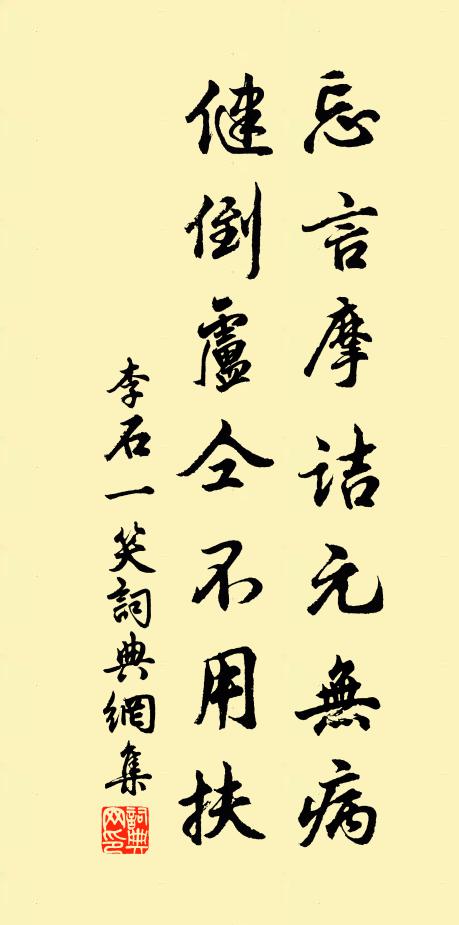 忘言摩詰元無病
健倒盧仝不用扶
李石一笑詞典網集
詞典
网印